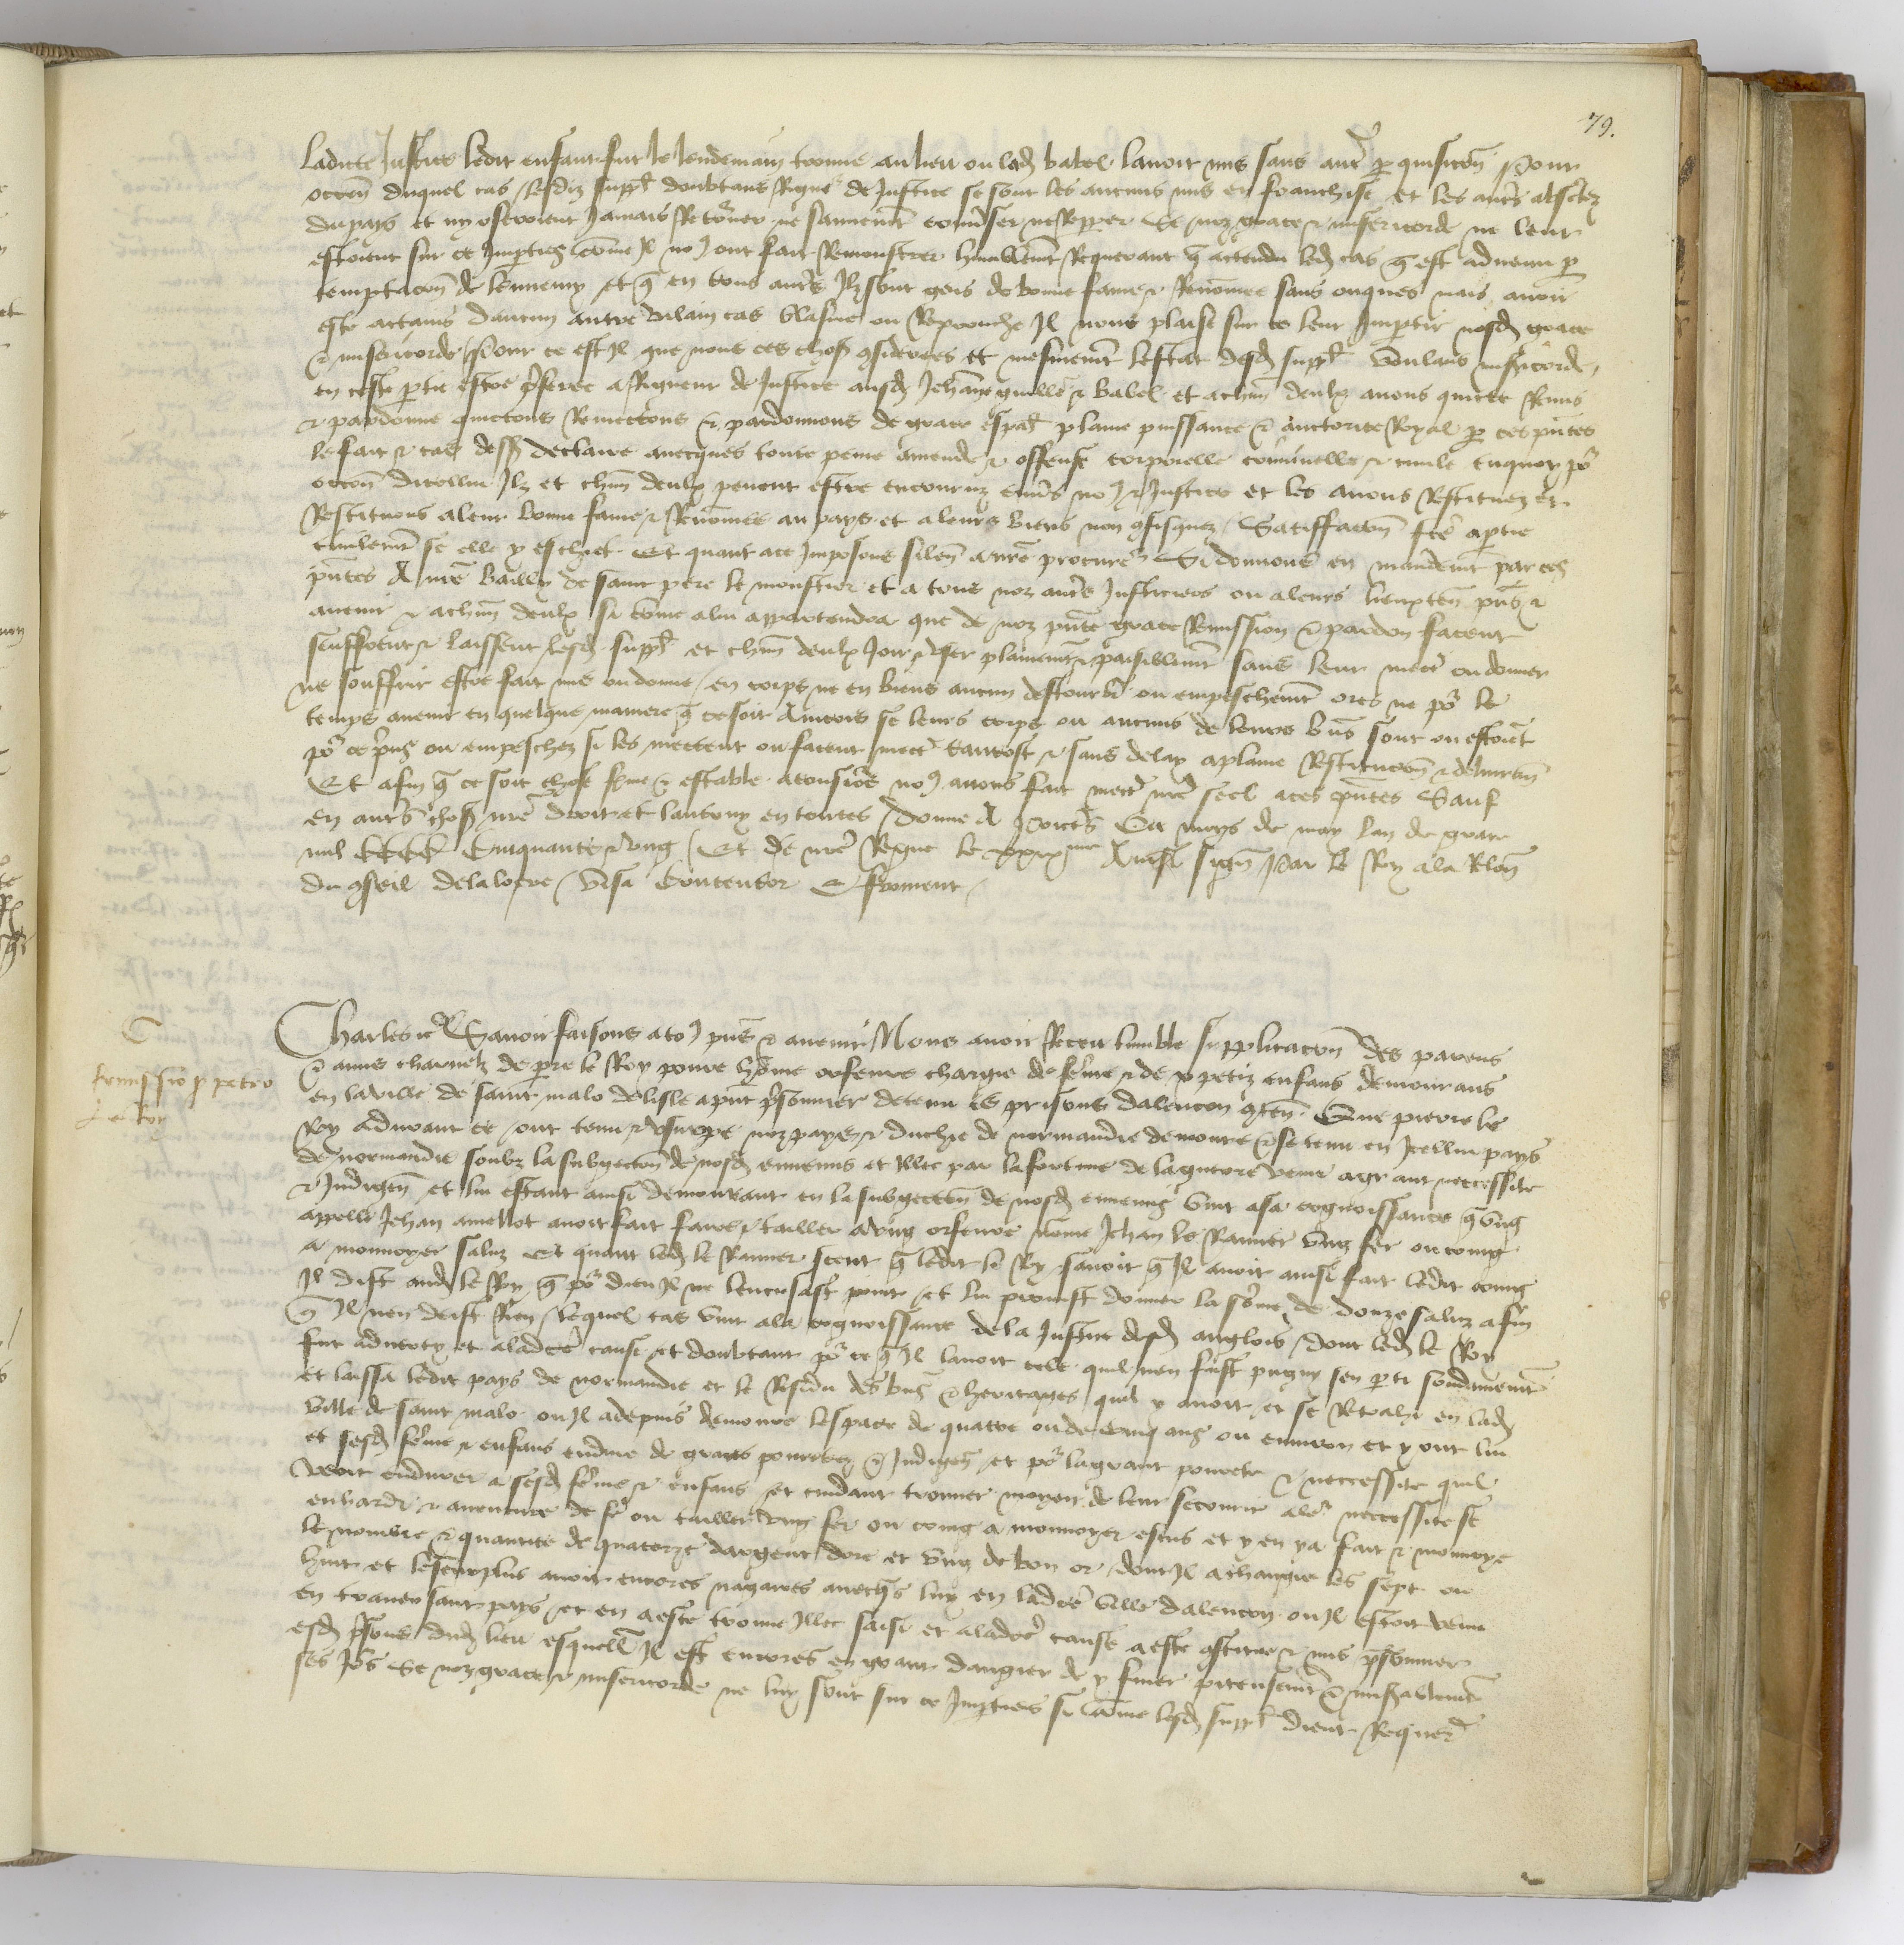 79.
ladicte Justice ledit enfant fut le lendemain trouve au lieu ou lad. babel lavoit mis sans autre perquisicon Pour
occon duquel cas lesdiz suppl. doubtans Rigueur de Justice se sont les aucuns mis en franchise et les autres absentez
du pays et ny oseroient Jamais Retourner ne seurement converser ne Repper Se noz grace et misericorde ne leur
estoient sur ce Imparties comme Il nous ont fait Remonstrer humblement Requerant que actendu led. cas qui est advenu par
temptacon de lennemy et que en tous autres Ilz sont gens de bonne fame et Renommee sans onques mais avoir
este actains daucun autre vilain cas blasme ou Reprouche Il nous plaise sur ce leur Impartir nosd. grace
et misericorde Pour ce est Il que nous ces choses considerees et mesmement lestat desd. suppl. voulans misericorde
en ceste partie estre preferee a Rigueur de Justice ausd. Jehanne guille et babel et a chacun deulx avons quicte Remis
et pardonne quictons Remectons et pardonnons de grace espal plaine puissance et auctorite Royal par ces presentes
le fait et cas dessus declaire avecques toute peine amende et offense corporelle criminelle et civile en quoy pour
occon dicellui Ilz et chacun deulx peuent estre encouruz envers nous et Justice et les avons Restituez et
Restituons a leur bonne fame et Renommee au pays et a leurs biens non confisquez Satisfacon fcte a partie
civilement se elle y eschiet Et quant a ce Imposons silence a nre procureur Si donnons en mandement par ces
presentes A nre bailly de saint pere le moustier et a tous noz autres Justiciers ou a leurs lieuxten. presens et
avenir et a chacun deulx si comme a lui appartendra que de noz presente grace Remission et pardon facent
seuffrent et laissent lesd. suppl. et chacun deulx Joir et user plainement et paisiblement sans leur mectre ou donner
ne souffrir estre fait mis ou donne en corps ne en biens aucun destourbier ou empeschement ores ne pour le
temps avenir en quelque maniere que ce soit Aincois se leurs corps ou aucuns de leurs biens sont ou estoient
pour ce prins ou empeschez si les mectent ou facent mectre tantost et sans delay a plaine Restitucon et delivrance
Et afin que ce soit chose ferme et estable a tousiours nous avons fait mectre nre seel a ces presentes Sauf
en autres choses nre droit et lautruy en toutes Donne A Poictiers Ou moys de may Lan de grace
mil cccc cinquante et ung Et de nre Regne le xxixme Ainsi signe Par le Roy a la Relon
du conseil Delaloere Visa Contentor E froment
Charles etc Savoir faisons a tous presens et avenir Nous avoir Receu lumble supplicacon des parens
et amis charnelz de pierre le Roy povre homme orfevre chargie de femme et de v petiz enfans demourans
Remissio p petro
Le Roy
en la ville de saint malo de lisle a present prisonnier detenu es prisons dalencon conten. Que pieca les
 ont tenu et usurpe noz pays et duchie de normandie demoure et se tenir en Icellui pays
de normandie soubz la subgection de nosd. ennemis et Illec par la fortune de la guerre venu a grant neccessite
et Indigence et lui estant ainsi demourant en la subgection de nosd. ennemis vint a sa congnoissance que ung
appelle Jehan amellot avoit fait faire et tailler a ung orfevre nomme Jehan le Rannier ung fer ou coing
a monnoyer saluz Et quant led. le Rannier sceut que ledit le Roy savoit que Il avoit ainsi fait ledit coing
Il dist aud. le Roy que pour dieu Il ne lencusast point et lui promist donner la somme de douze saluz afin
que Il nen deist Rien Lequel cas vint a la congnoissance de la Justice desd. anglois dont led. le Roy
fut adverty et a ladicte cause et doubtant pour ce que Il lavoit cele quil nen fust pugny sen parti soudainement
et laissa ledit pays de normandie et le Residu des biens et heritages quil y avoit et se Retrahi en lad.
ville de saint malo ou Il a depuis demoure lespace de quatre ou de cinq ans ou environ et y ont lui
et sesd. femme et enfans endure de grans povretez et Indigences et pour la grant povrete et neccessite quil
veoit endurer a sesd. femme et enfans et cuidant trouver moyen de leur secourir a leur neccessite se
enhardi et aventure de fe ou tailler ung fer ou coing a monnoyer escus et y en y a fait et monnoye
le nombre et quantite de quatorze dargent dore et ung de bon or dont Il a changie les sept ou
huit et le surplus avoit encores nagaires avecques luy en ladicte ville dalencon ou Il estoit venu
en traversant pays et en a este trouve Illec saisi et a ladicte cause a este constitue et mis prisonnier
esd. prisons dud. lieu esquelles Il est encores en grant dangier de y finer piteusement et miserablement
ses jours Se noz grace et misericorde ne luy sont sur ce Imparties si comme lesd. suppl. dient Requerant